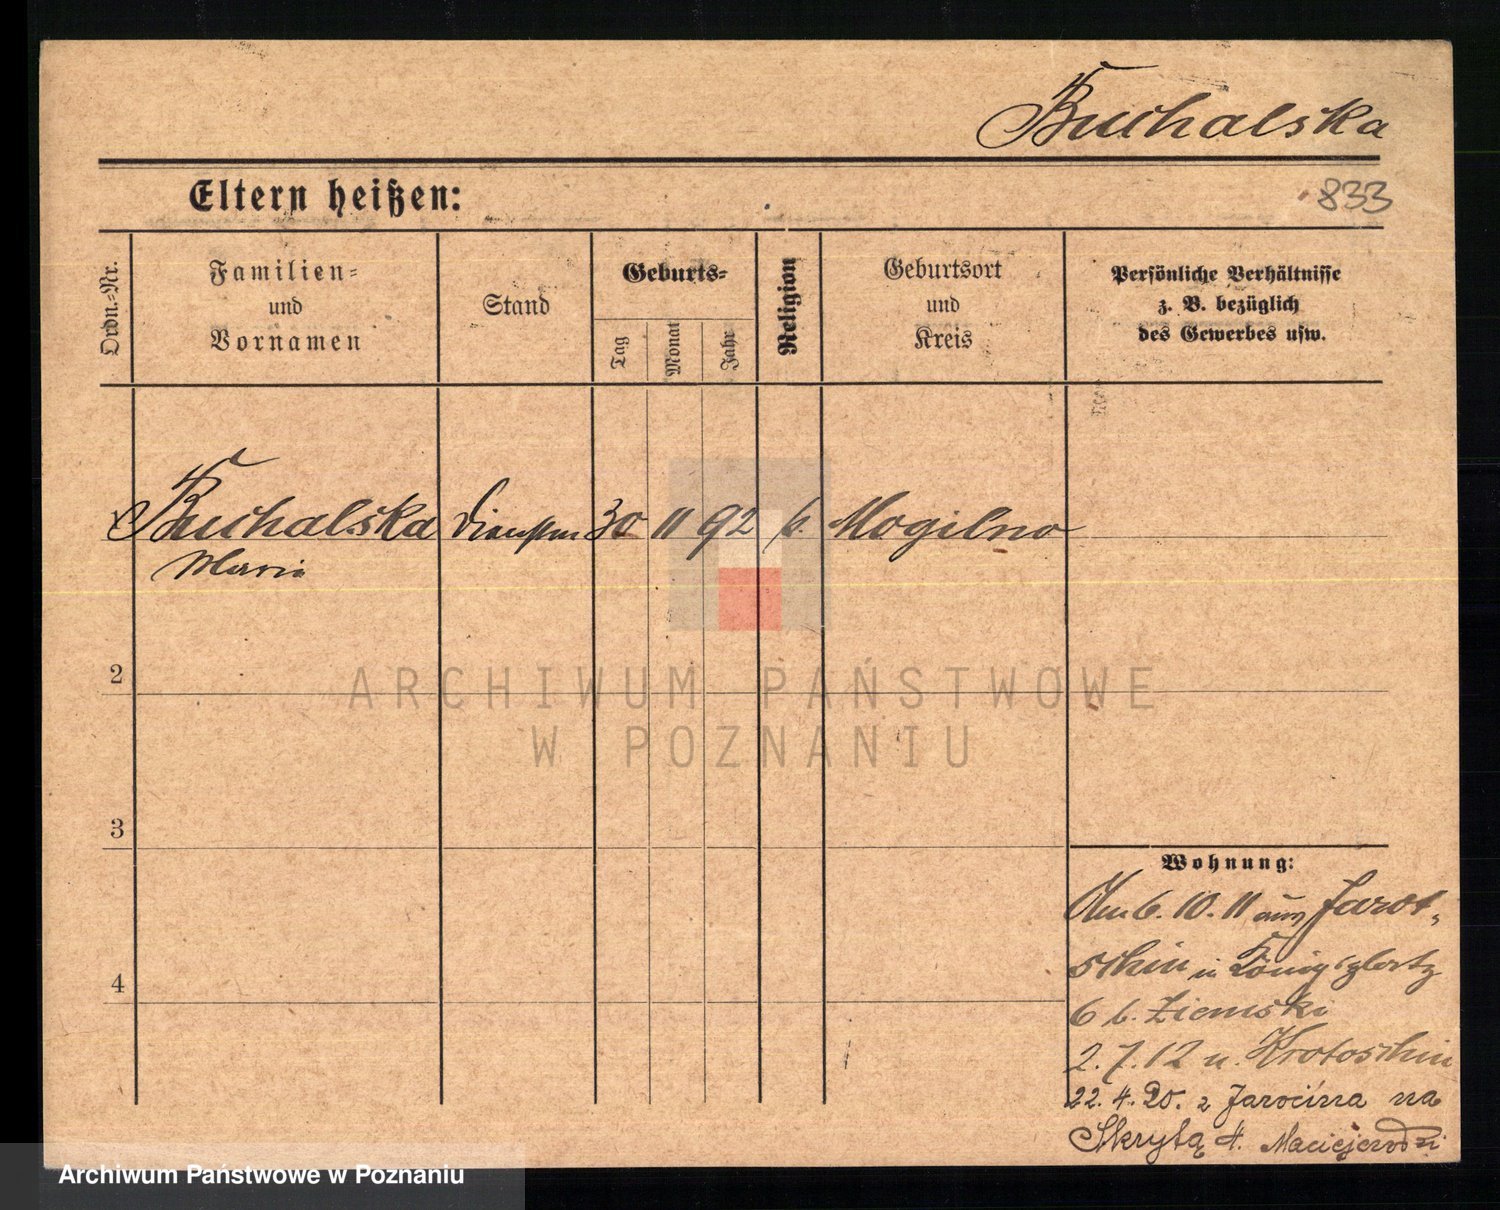 Buchalska
Eltern heißen:
833
Ordn.-Nr.
Familien-
und
Vornamen
Stand
Geburts-
Tag
Monat
Jahr
Religion
Geburtsort
und
Kreis
Persönliche Verhältnisse
z. B. bezüglich
des Gewerbes usw.
Buchalska
Maria
30 11 92 k. Mogilno
2
3
4
ARCHIWUM PAŃSTWOWE
W POZNANIU
Wohnung:
6. 10. 11 aus Jarot-
schin in Königsplatz
6 b. Ziemski
2. 7. 12 n. Krotoschin
22. 4. 20. z Jarocina na
Skrytą 4. Maciejewski
Archiwum Państwowe w Poznaniu